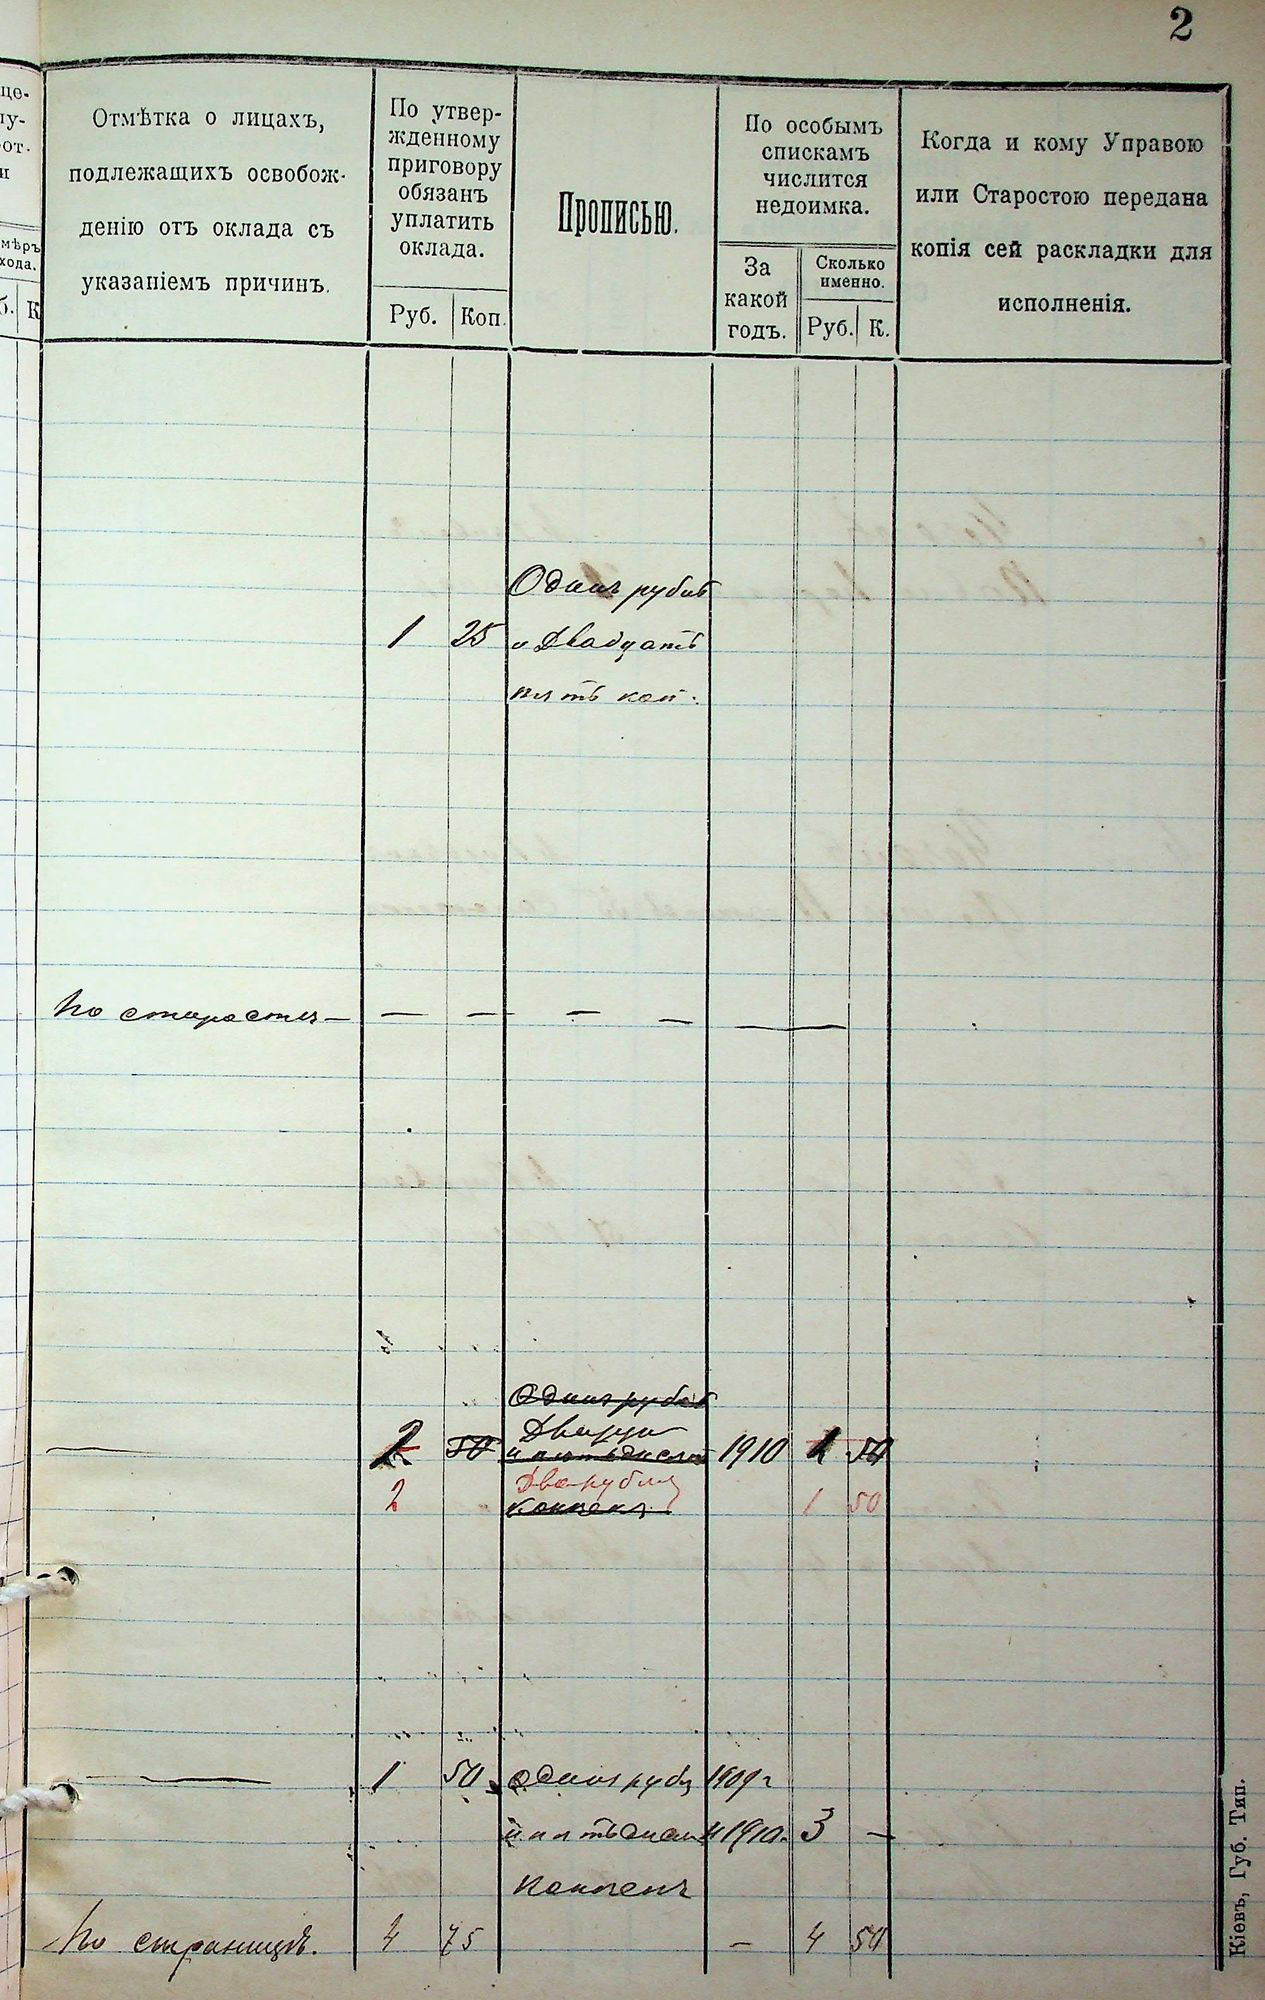 2
це-
лу-
от.
и
мѣръ
хода.
б. К
Отмѣтка о лицахъ,
подлежащихъ освобож-
денію отъ оклада съ
указаніемъ причинъ.
По утвер-
жденному
приговору
обязанъ
уплатить
оклада.
Руб. Коп.
Прописью.
По особымъ
спискамъ
числится
недоимка.
За
какой
годъ.
Сколько
именно.
Руб. К.
Когда и кому Управою
или Старостою передана
копія сей раскладки для
исполненія.
Одинъ рубль
1 25 и Двадцать
пять коп.
По старости — — — — — —
Одинъ рубль
50 и пятьдесят 1910 50
2 Два рубля 1 50
Копеек
1 50 Один рубл 1909 г
и пятьдесят и 1910. 3 —
Копеекъ
По страницѣ. 4 75 — 4 50
Кіевъ, Губ. Тип.